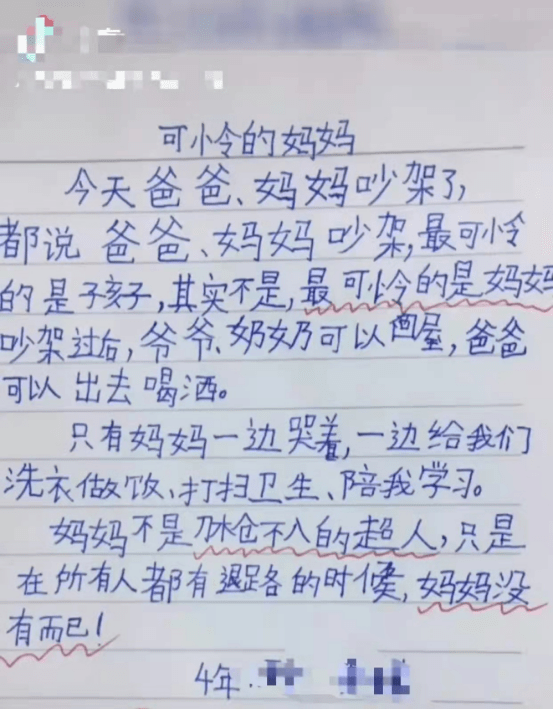 可怜的妈妈
今天爸爸、妈妈吵架了,
都说爸爸、妈妈吵架,最可怜
的是子孩子,其实不是,最可怜的是妈妈
吵架过后,爷爷、奶奶可以回屋,爸爸
可以出去喝洒。
只有妈妈一边哭着,一边给我们
洗衣做饭、打扫卫生、陪我学习。
妈妈不是刀枪不入的超人,只是
在所有人都有退路的时候,妈妈没
有而已!
4年